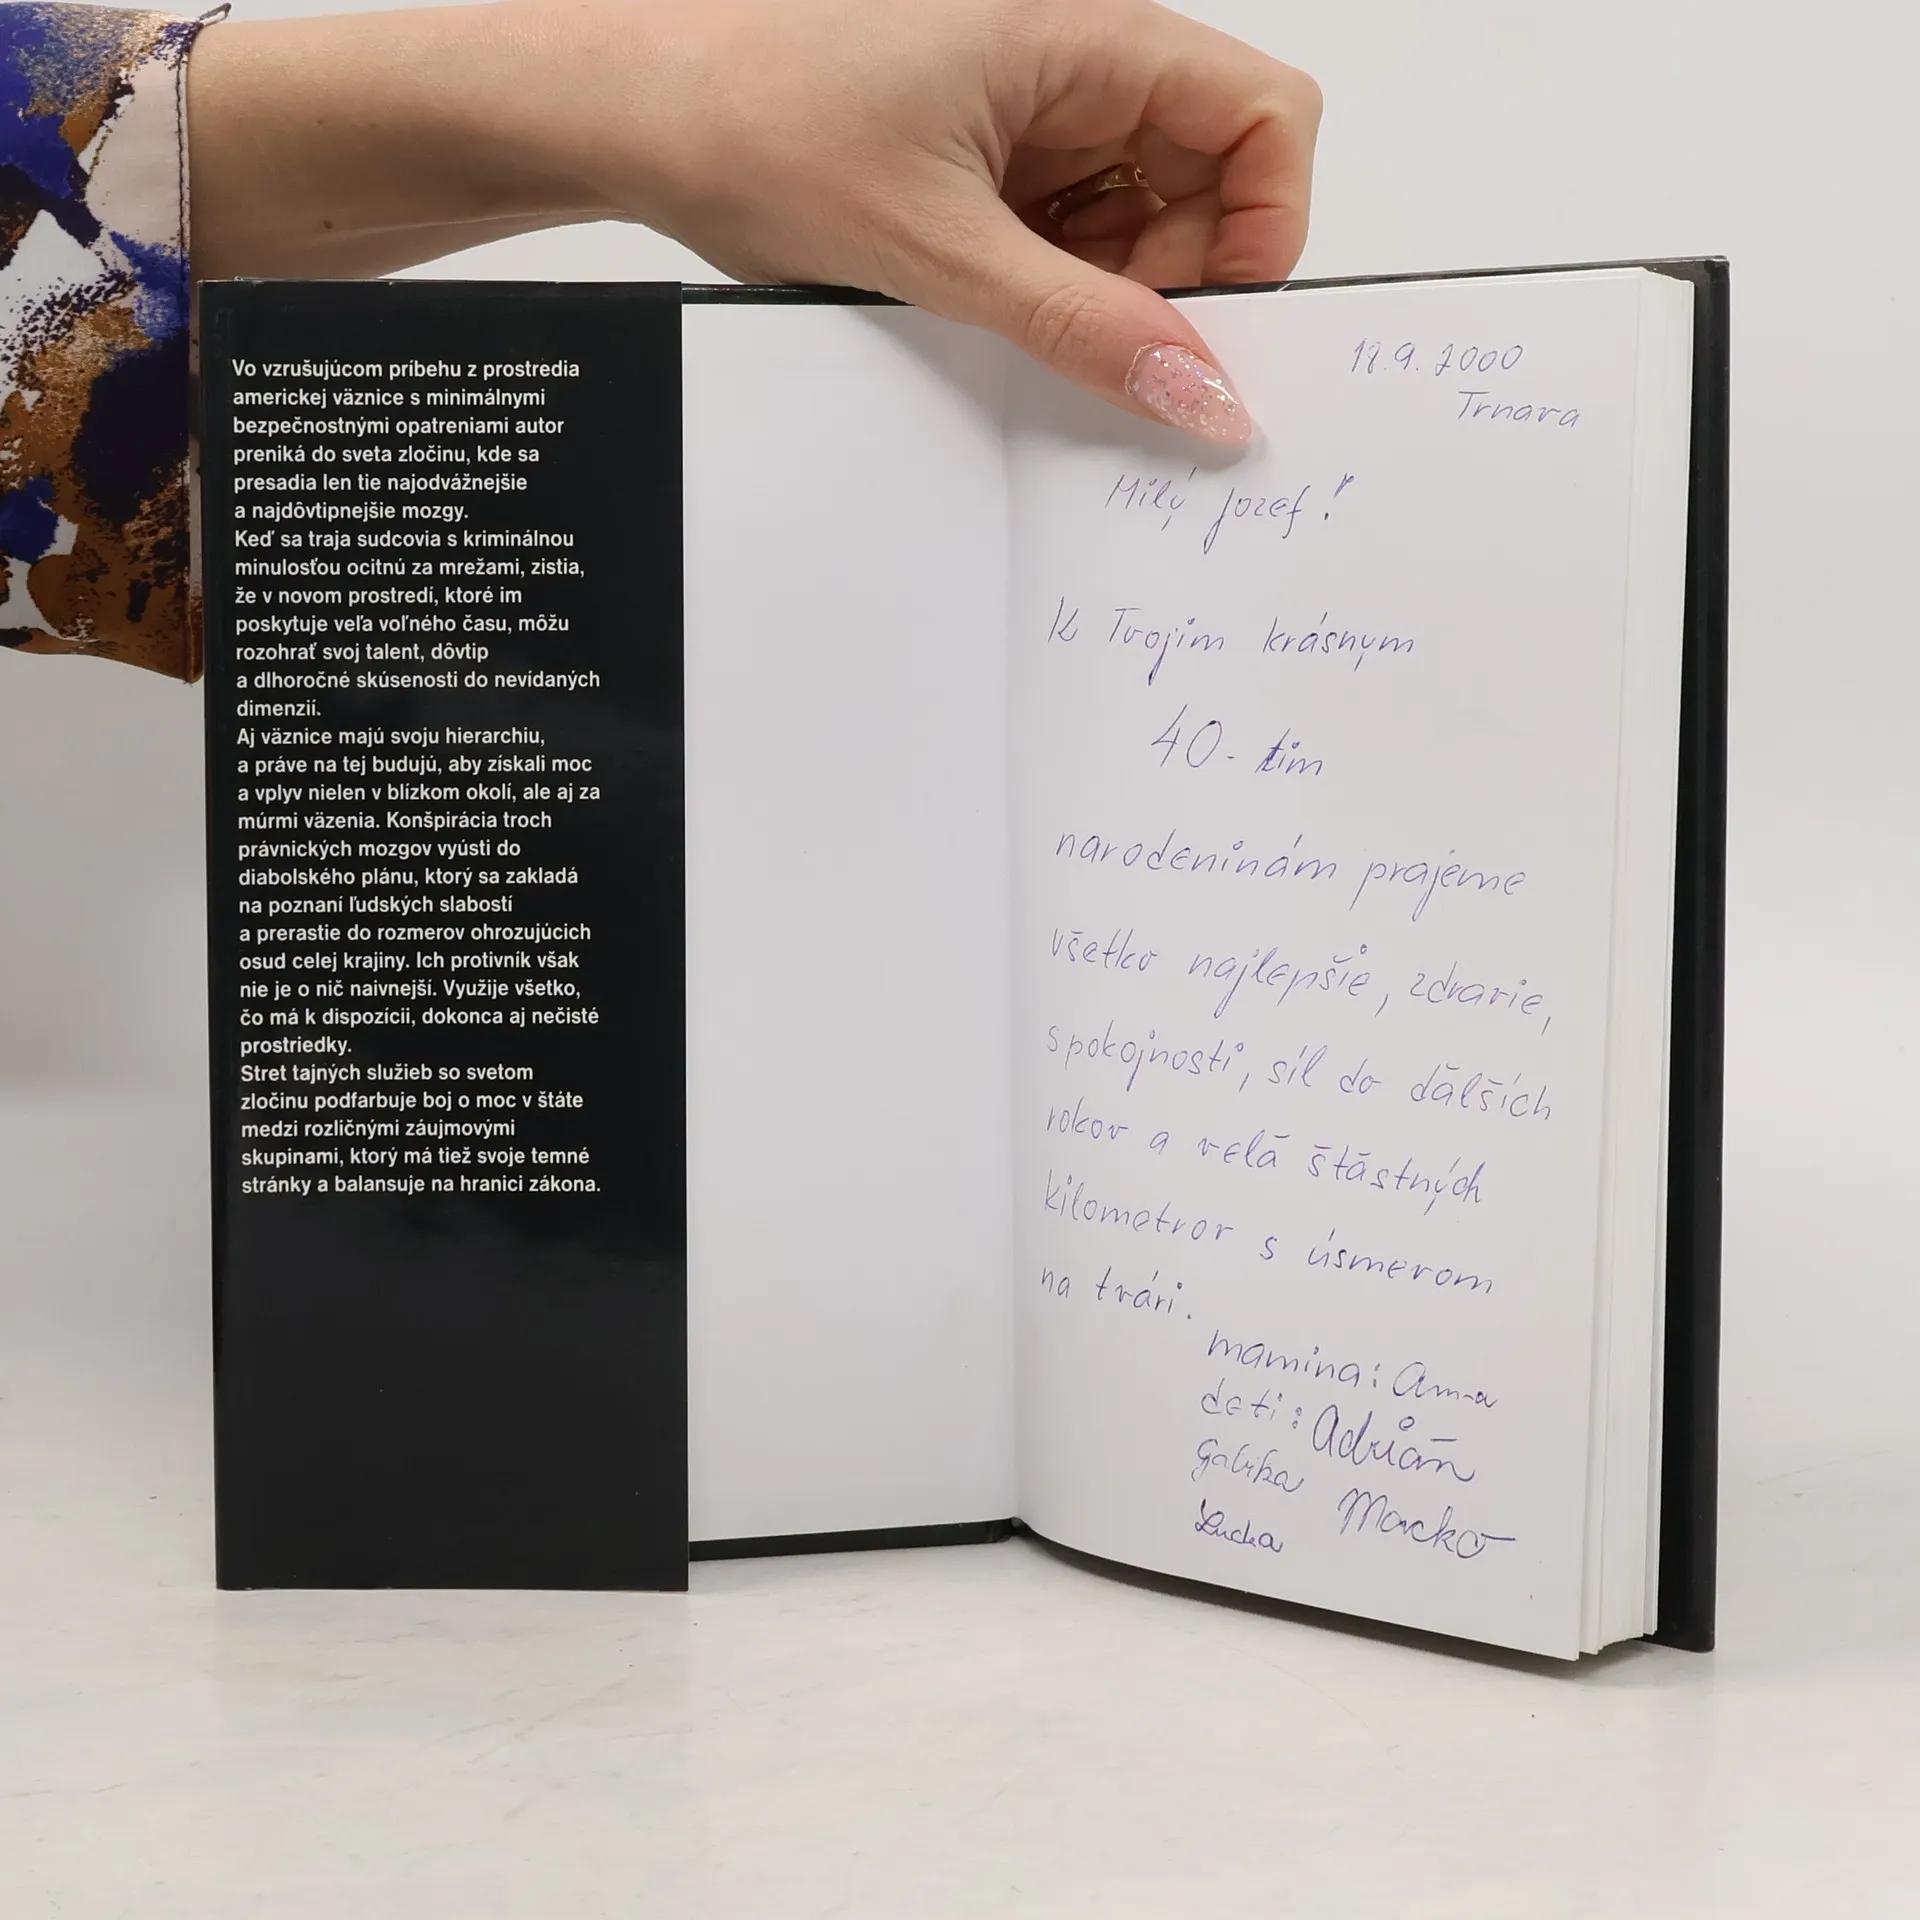 Vo vzrušujúcom príbehu z prostredia
americkej väznice s minimálnymi
bezpečnostnými opatreniami autor
preniká do sveta zločinu, kde sa
presadia len tie najodvážnejšie
a najdôvtipnejšie mozgy.
Keď sa traja sudcovia s kriminálnou
minulosťou ocitnú za mrežami, zistia,
že v novom prostredí, ktoré im
poskytuje veľa voľného času, môžu
rozohrať svoj talent, dôvtip
a dlhoročné skúsenosti do nevídaných
dimenzií.
Aj väznice majú svoju hierarchiu,
a práve na tej budujú, aby získali moc
a vplyv nielen v blízkom okolí, ale aj za
múrmi väzenia. Konšpirácia troch
právnických mozgov vyústi do
diabolského plánu, ktorý sa zakladá
na poznaní ľudských slabostí
a prerastie do rozmerov ohrozujúcich
osud celej krajiny. Ich protivník však
nie je o nič naivnejší. Využije všetko,
čo má k dispozícii, dokonca aj nečisté
prostriedky.
Stret tajných služieb so svetom
zločinu podfarbuje boj o moc v štáte
medzi rozličnými záujmovými
skupinami, ktorý má tiež svoje temné
stránky a balansuje na hranici zákona.
18.9.2000
Trnava
Milý Jozef!
K Tvojim krásnym
40-tim
narodeninám prajeme
všetko najlepšie, zdravie,
spokojnosti, síl do ďalších
rokov a veľa šťastných
kilometrov s úsmevom
na tvári.
mamina:
deti: Adrián
Gabika Macko